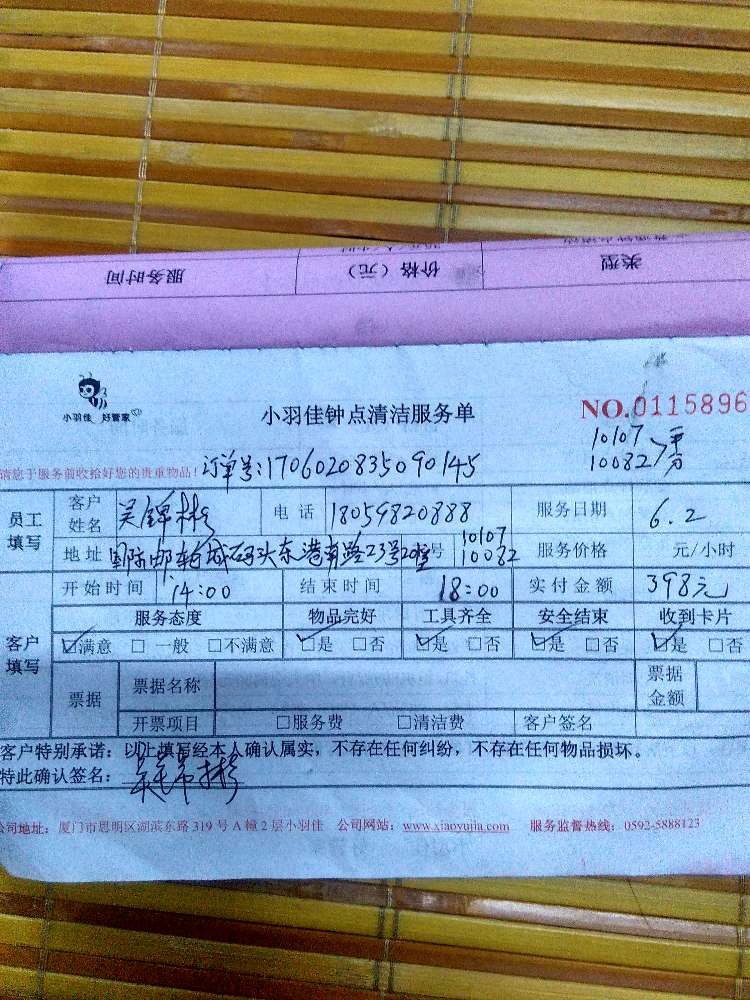 服务时间 价格（元） 类型
小羽佳 好管家
小羽佳钟点清洁服务单 NO.0115896
10107
10082 平分
请您于服务前收给好您的贵重物品！订单号:1706020835090145
员工填写 客户姓名 吴锦彬 电话 18059820888 服务日期 6.2
地址 国际邮轮城码头东港南路23号20幢 号 10107 10082 服务价格 元/小时
开始时间 14:00 结束时间 18:00 实付金额 398元
客户填写 服务态度 物品完好 工具齐全 安全结束 收到卡片
☑满意 □一般 □不满意 ☑是 □否 ☑是 □否 ☑是 □否 ☑是 □否
票据 票据名称 票据金额
开票项目 □服务费 □清洁费 客户签名
客户特别承诺：以上填写经本人确认属实，不存在任何纠纷，不存在任何物品损坏。
特此确认签名： 吴锦彬
公司地址：厦门市思明区湖滨东路319号A幢2层小羽佳 公司网站：www.xiaoyujia.com 服务监督热线：0592-5888123